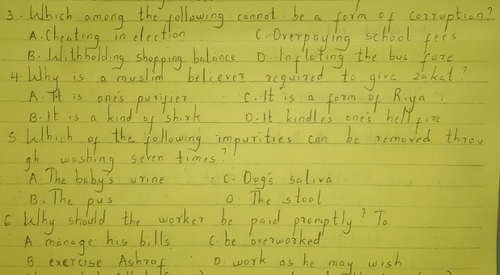 3. Which among the following cannot be a form of corruption?
A. Cheating in election C. Overpaying school fees
B. Withholding shopping balance D. Inflating the bus fare
4. Why is a muslim believer required to give zakat?
A. It is one's purifier C. It is a form of Riya
B. It is a kind of shirk D. It kindles one's hell fire
5. Which of the following impurities can be removed throu
gh washing seven times?
A. The baby's urine C. Dog's saliva
B. The pus D. The stool
6 Why should the worker be paid promptly? To
A manage his bills C. be overworked
B exercise Ashrof D. work as he may wish